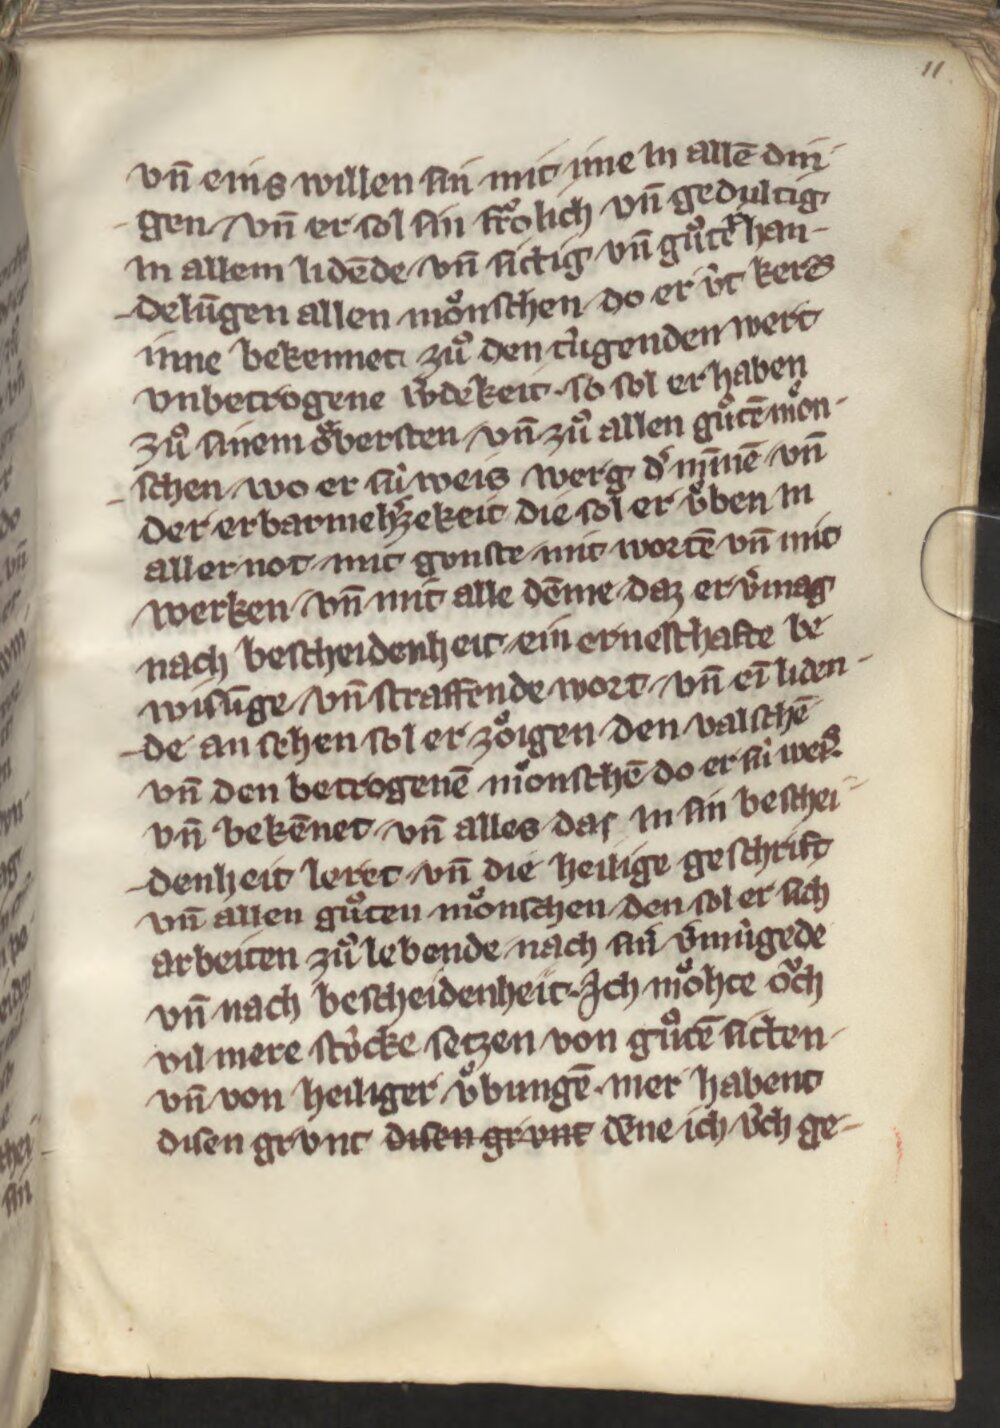 11
vn̄ eins willen sin mit ime in allē din-
gen vn̄ er sol sin froͤlich vn̄ gedultig
in allem lidēde vn̄ sittig vn̄ guͦt' han-
delūgen allen moͤnschen do er v̓t kers
inne bekennet zuͦ den tv̓genden wert
vnbetrogene w̓dekeit so sol er haben
zuͦ sinem oͤbersten vn̄ zuͦ allen guͦtē moͤn-
schen wo er sú weis werg d' mīnē vn̄
der erbarmeh'zekeit die sol er vͤben in
aller not mit gonste mit wortē vn̄ mit
werken vn̄ mit alle dēme daz er v'mag
nach bescheidenheit ein ernesthafte be
wisūge vn̄ straffende wort vn̄ eī liden-
de an sehen sol er zoͤigen den valschē
vn̄ den betrogenē moͤnschē do er sú weis
vn̄ bekēnet vn̄ alles das in sin beschei-
denheit leret vn̄ die heilige geschrift
vn̄ allen guͦten moͤnschen den sol er sich
arbeiten zuͦ lebende nach sin̄ v'múgede
vn̄ nach bescheidenheit Ich moͤhte oͮch
vil mere stv̓cke setzen von guͦtē sitten
vn̄ von heiliger vͤbungē mer habent
disen grvnt disen grvnt dēne ich v̓ch ge-